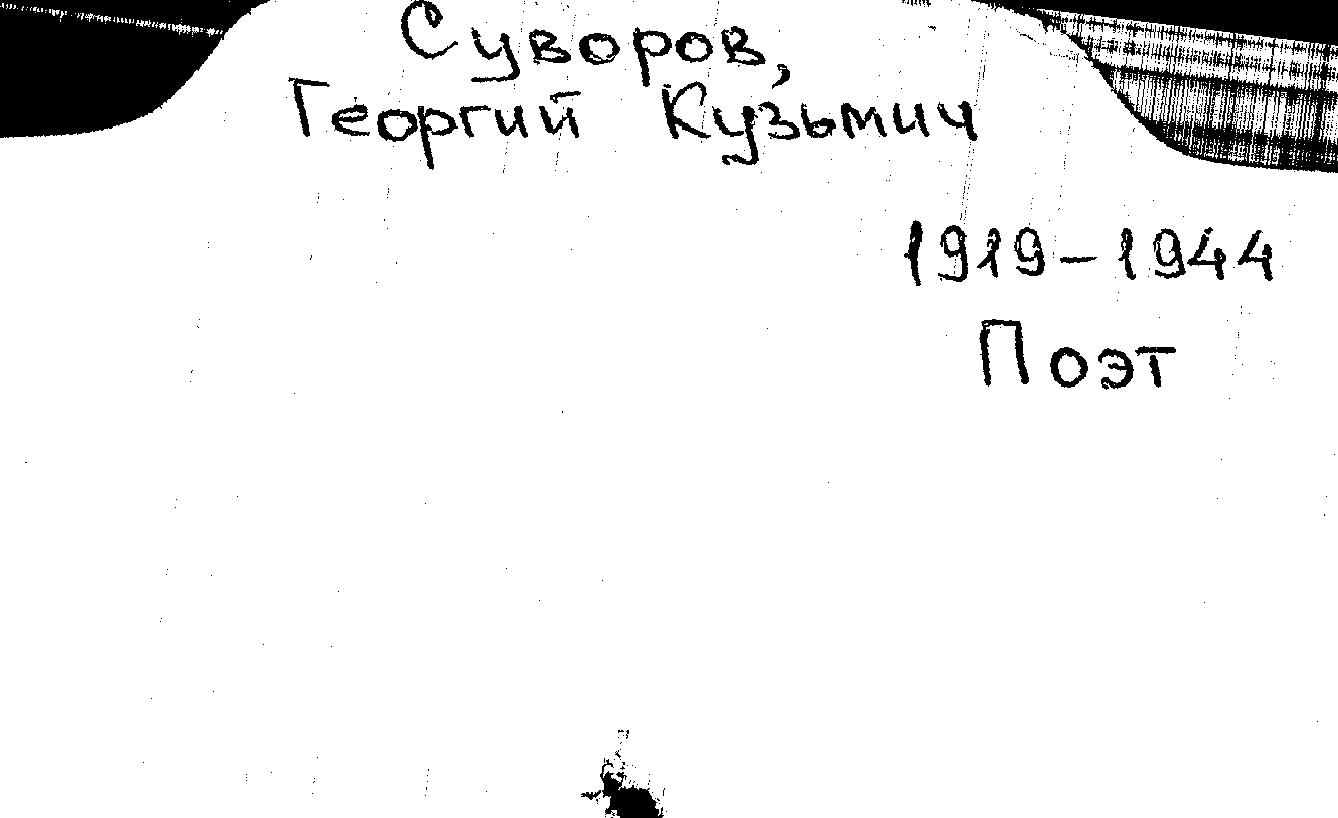 Суворов,
Георгий Кузьмич
1919-1944
Поэт